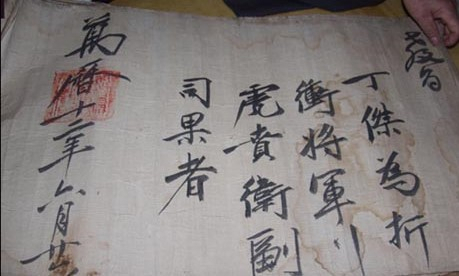 丁傑為折
衝將軍
虎賁衛副
司果者
萬曆十二年六月廿